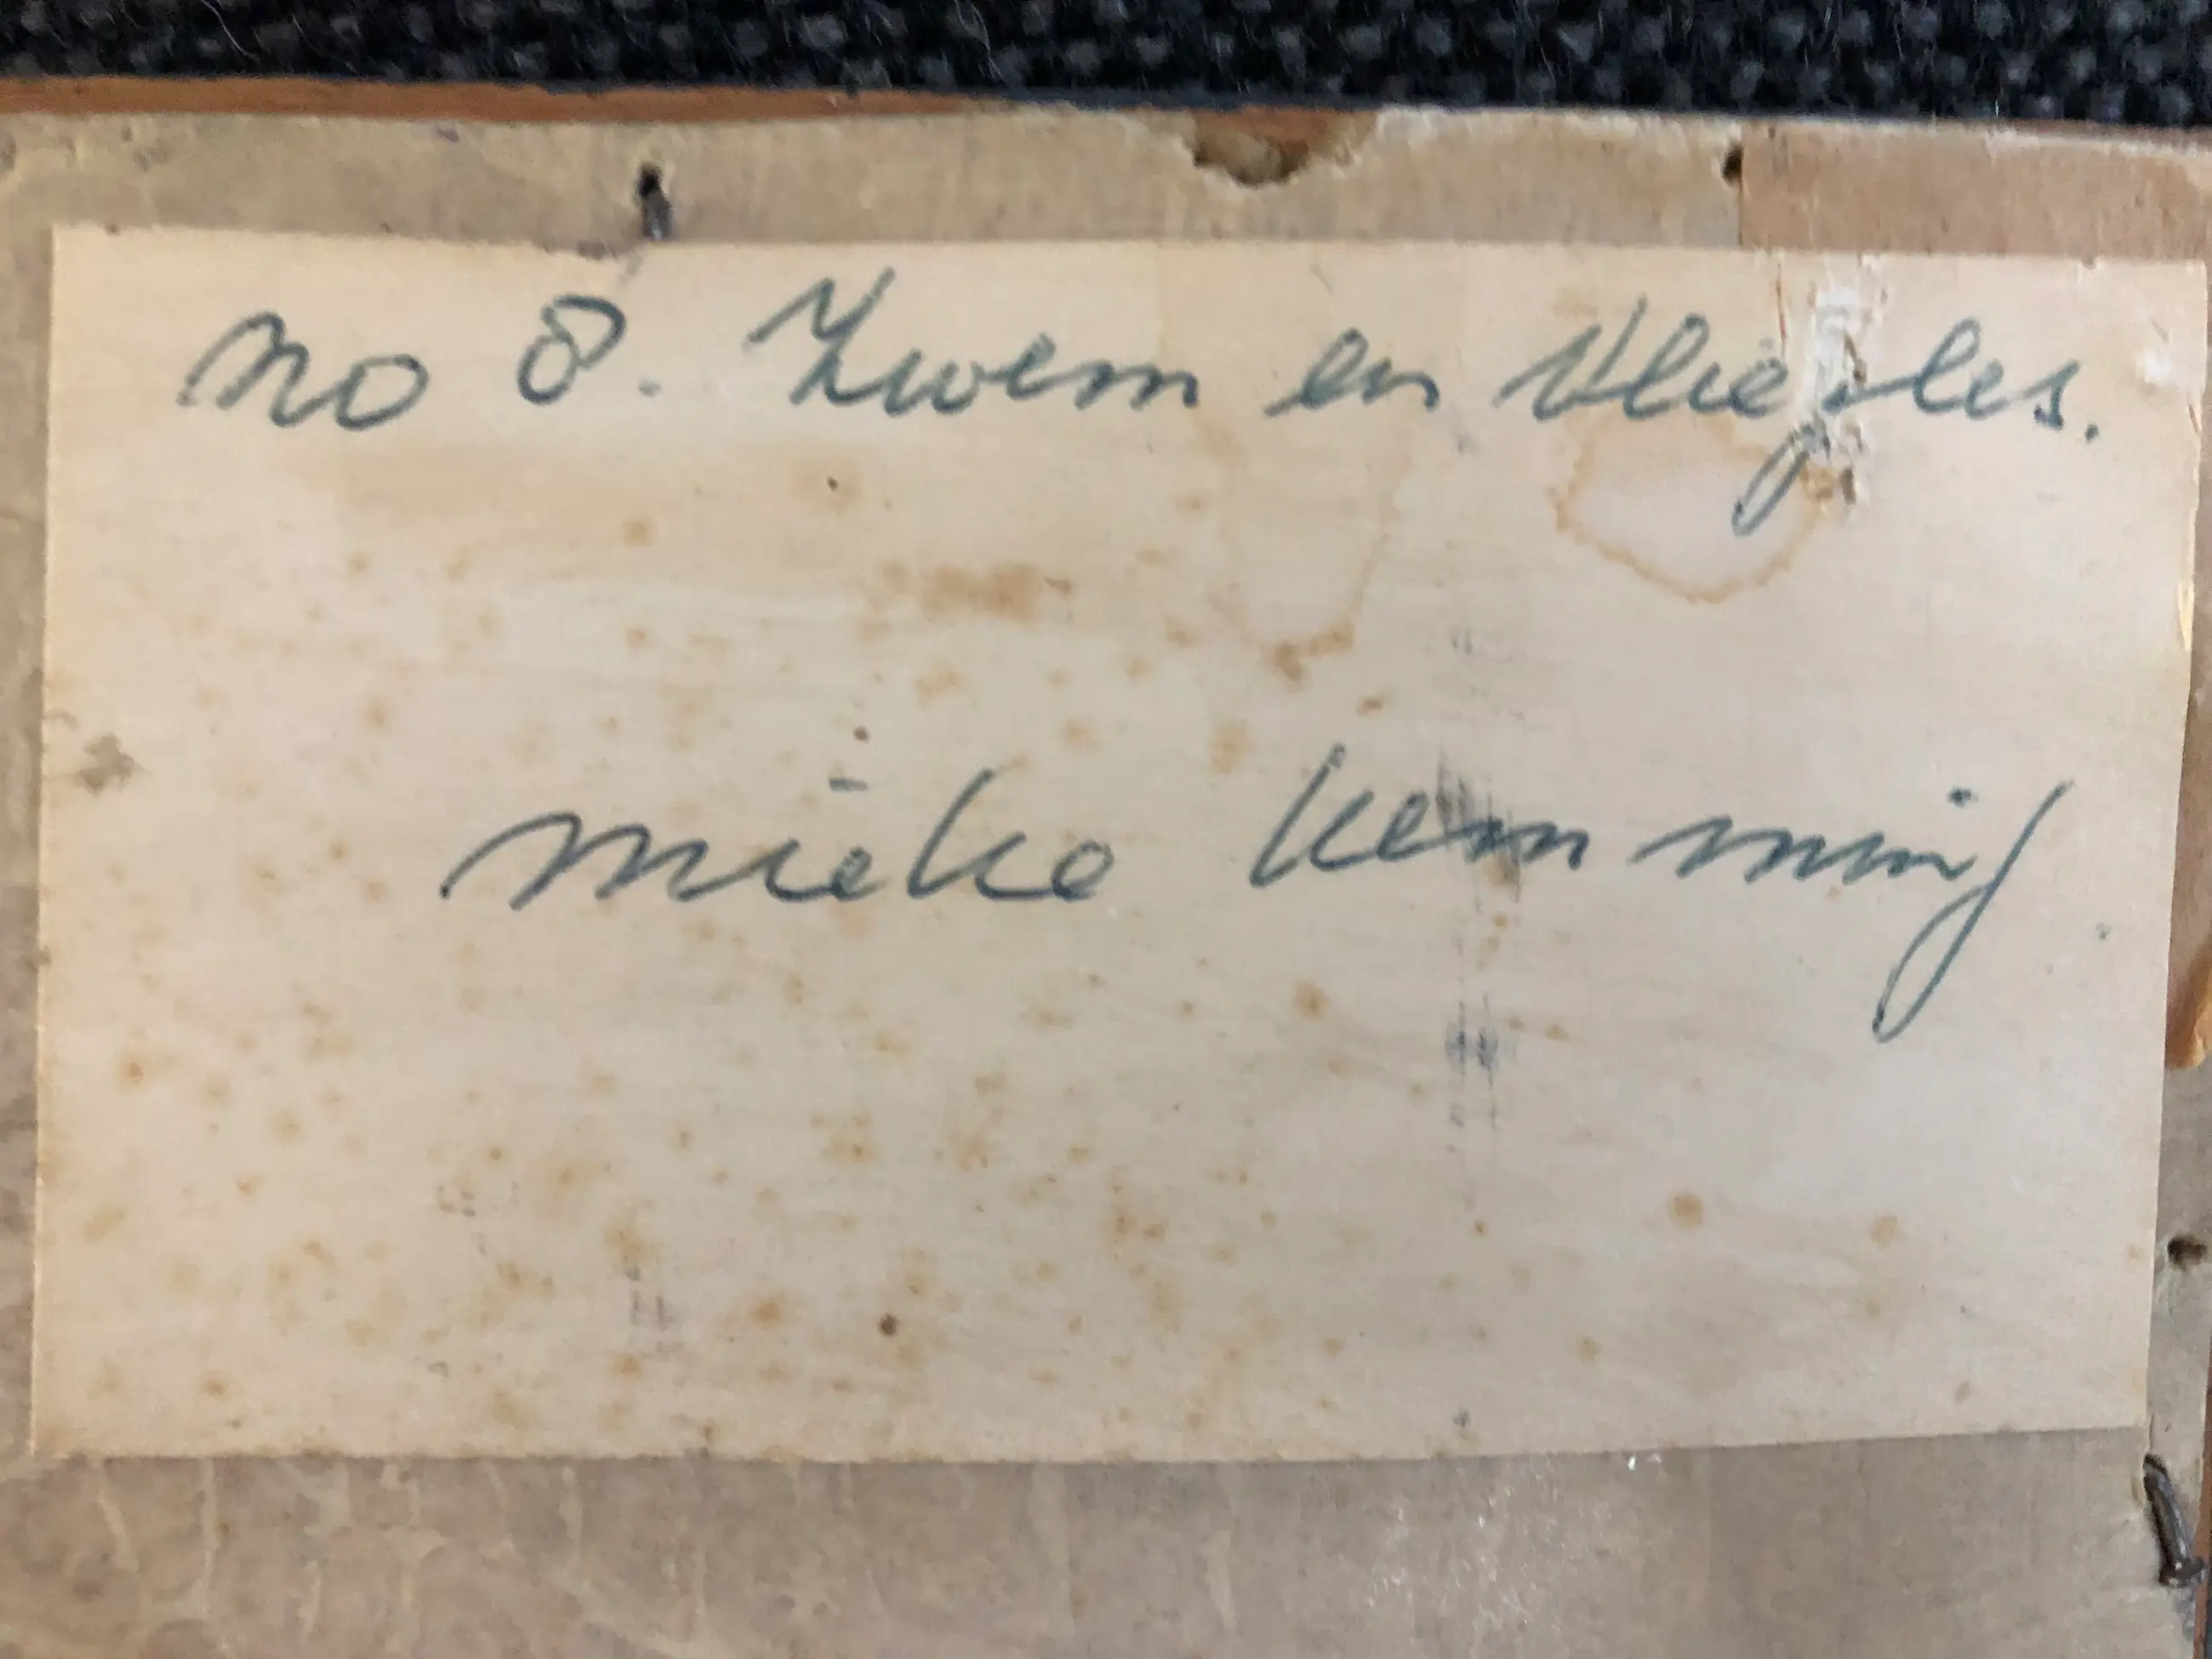 no 8. Zwem en vliegles.
mieke kemming